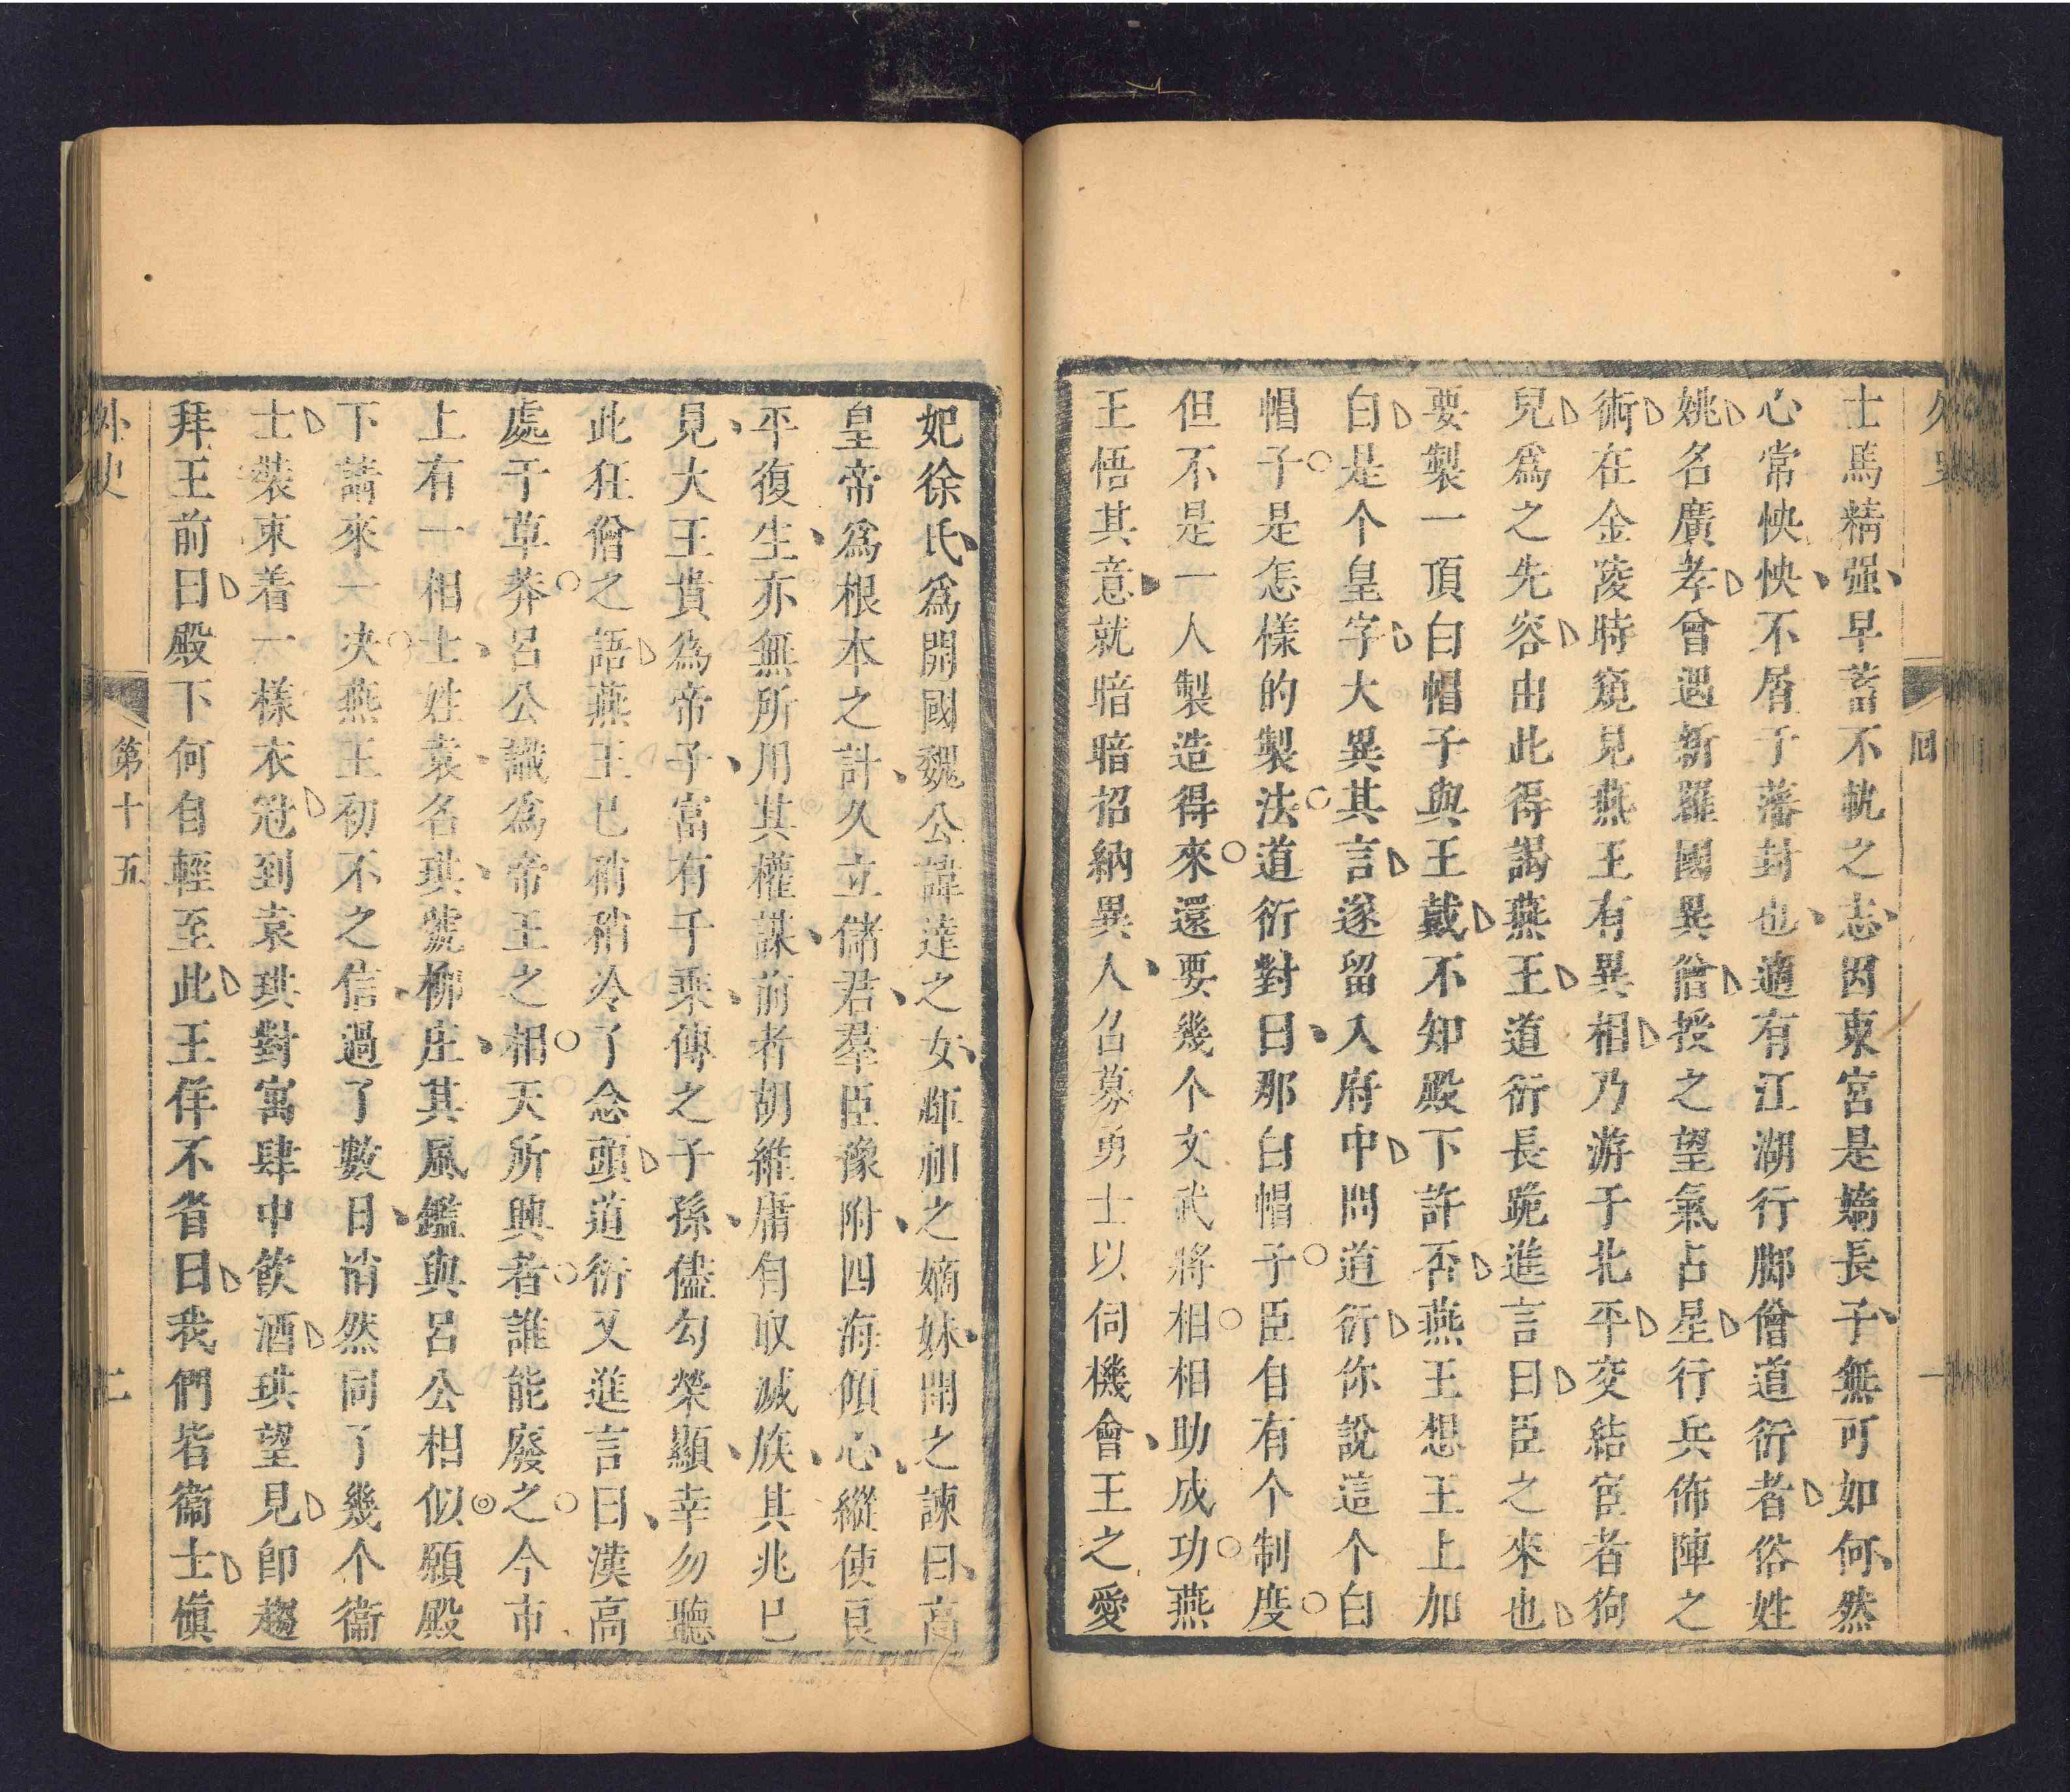 外史
回
一
士馬精强早蓄不軌之志因東宮是嫡長子無可如何然
心常怏怏不屑于藩封也適有江湖行脚僧道衍者俗姓
姚名廣孝曾遇新羅國異僧授之望氣占星行兵佈陣之
術在金凌時窺見燕王有異相乃游于北平交結宦者狗
兒爲之先容由此得謁燕王道衍長跪進言曰臣之來也
要製一頂白帽子與王戴不知殿下許否燕王想王上加
白是个皇字大異其言遂留入府中問道衍你說這个白
帽子是怎樣的製法道衍對曰那白帽子臣自有个制度
但不是一人製造得來還要幾个文武將相相助成功燕
王悟其意就暗暗招納異人召募勇士以伺機會王之愛
妃徐氏爲開國魏公諱達之女輝祖之嫡妹聞之諫曰高
皇帝爲根本之計久立儲君羣臣豫附四海傾心縱使良
平復生亦無所用其權謀前者胡維庸自取滅族其兆已
見大王貴爲帝子富有千乘傳之子孫儘勾榮顯幸勿聽
此狂僧之語燕王已稍稍冷了念頭道衍又進言曰漢高
處于草莽呂公識爲帝王之相天所興者誰能廢之今市
上有一相士姓袁名珙號柳庄其風鑑與呂公相似願殿
下請來一决燕王初不之信過了數日悄然同了幾个衞
士裝束着一樣衣冠到袁珙對寓肆中飲酒珙望見即趨
拜王前曰殿下何自輕至此王佯不省曰我們皆衞士愼
外史
第十五
二